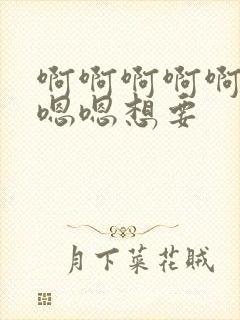 啊啊啊啊啊
嗯嗯想要
月下菜花贼